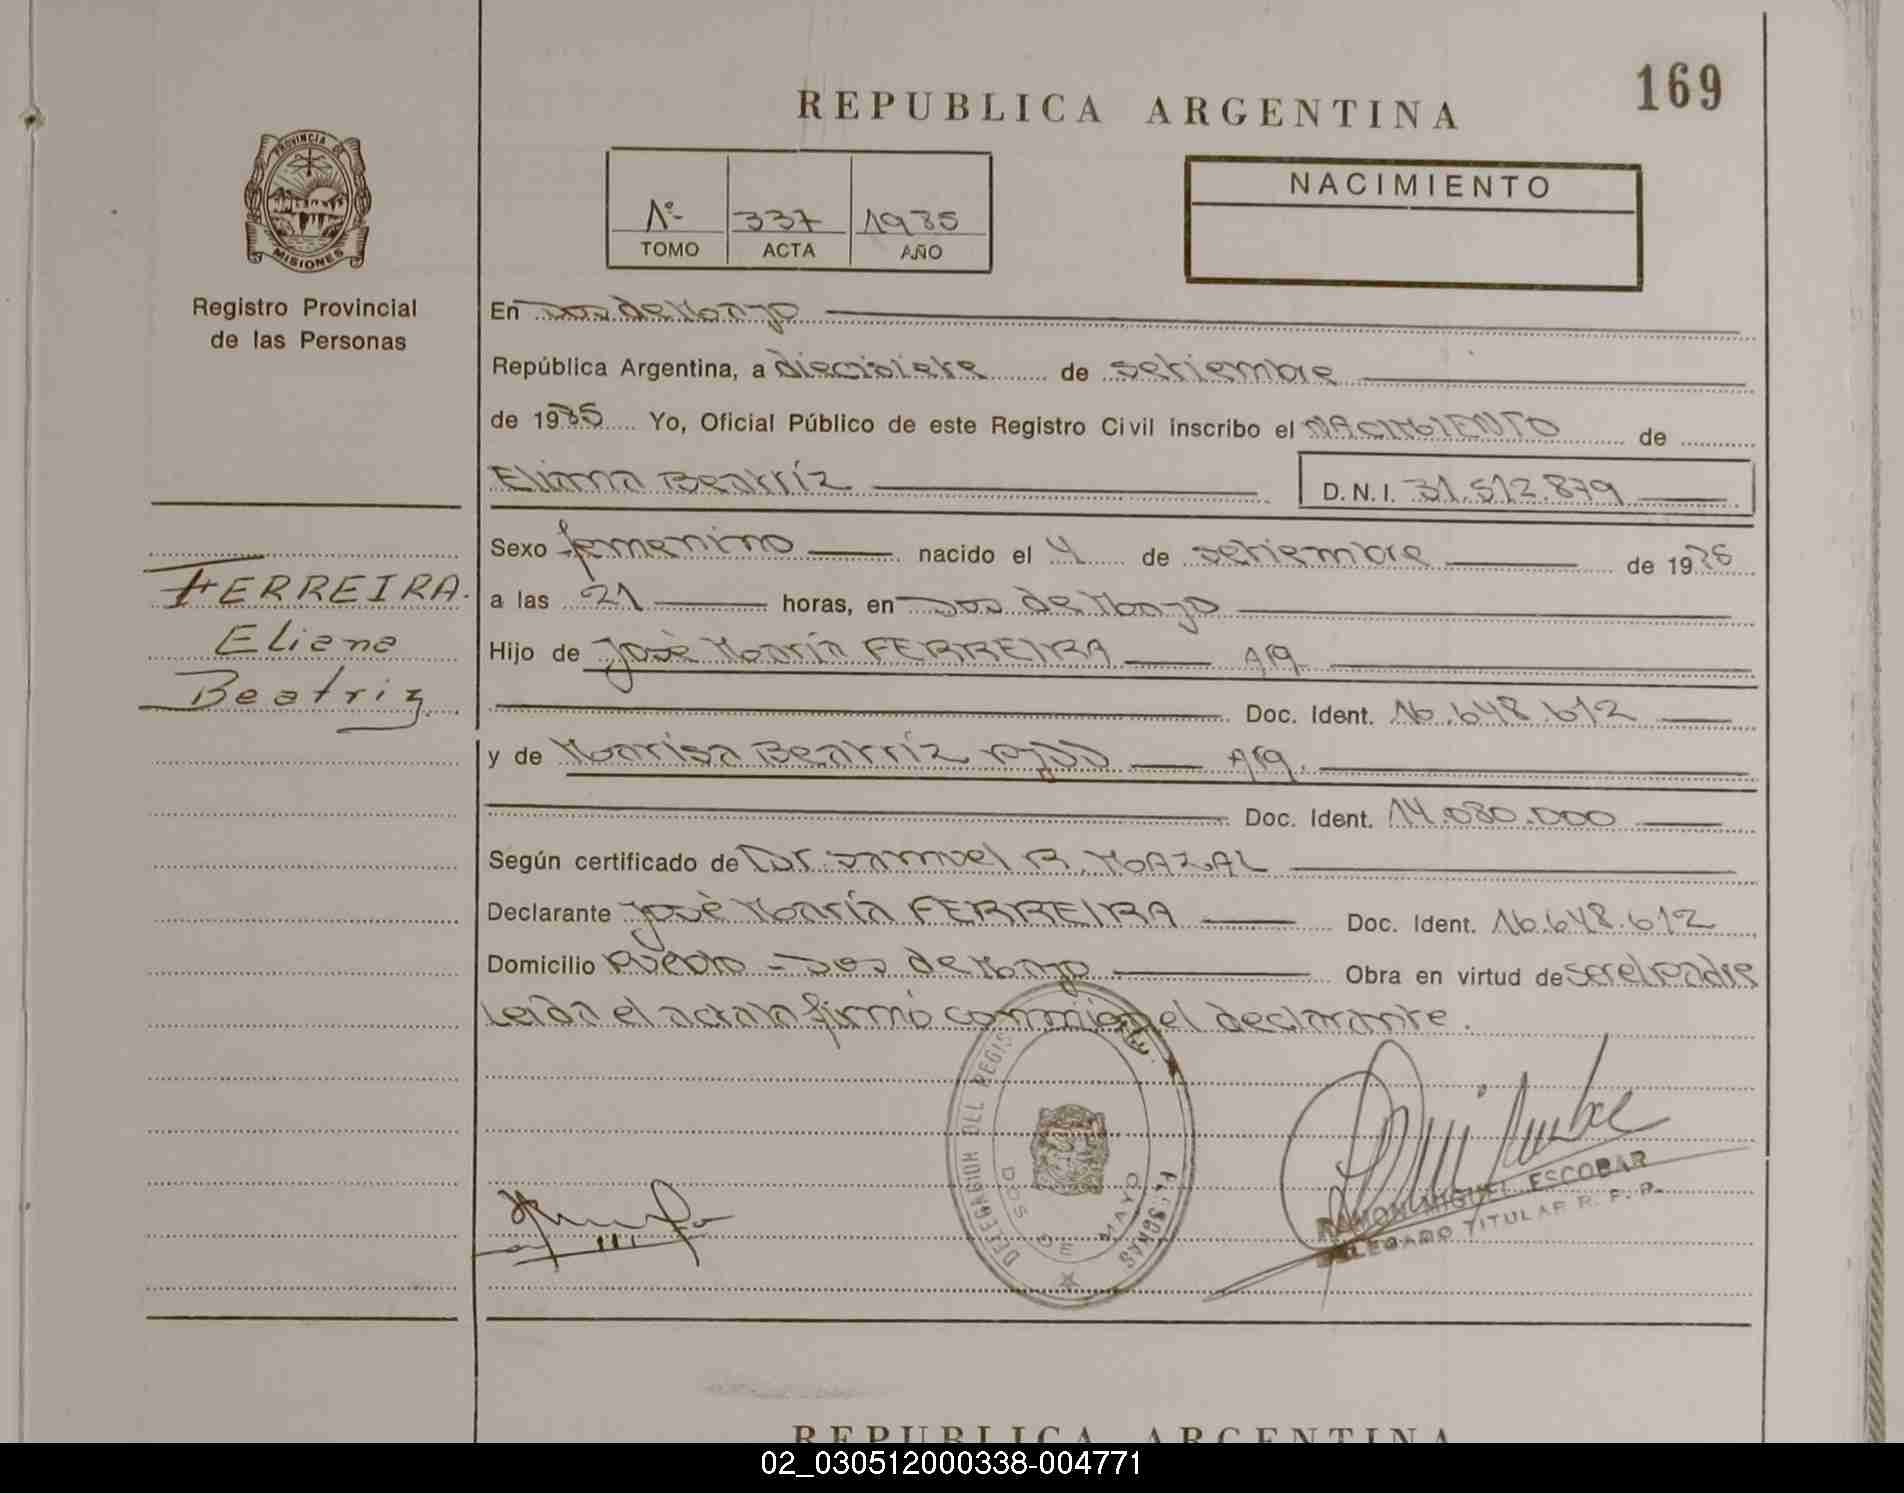 169
REPUBLICA ARGENTINA
PROVINCIA DE
MISIONES
Registro Provincial
de las Personas
1º 337 1985
TOMO ACTA AÑO
NACIMIENTO
En Dos de Mayo
República Argentina, a diecisiete de setiembre
de 1985 Yo, Oficial Público de este Registro Civil inscribo el NACIMIENTO de
Eliana Beatríz D.N.I. 31.512.879
Sexo femenino nacido el 4 de setiembre de 19
a las 21 horas, en Dos de Mayo
Hijo de José María FERREIRA Arg.
Doc. Ident. 16.648.612
y de Marisa Beatríz Arg.
Doc. Ident. 14.080.000
Según certificado de Dr. Samuel R. MAZAL
Declarante José María FERREIRA Doc. Ident. 16.648.612
Domicilio Pueblo - Dos de Mayo Obra en virtud de ser el padre
Leida el acta la firmó conmigo el declarante.
FERREIRA.
Eliana
Beatriz
DELEGACION DEL REGIS PERSONAS
DOS DE MAYO
RAMON MIGUEL ESCOBAR
DELEGADO TITULAR R. P. P.
REPUBLICA ARGENTINA
02_030512000338-004771